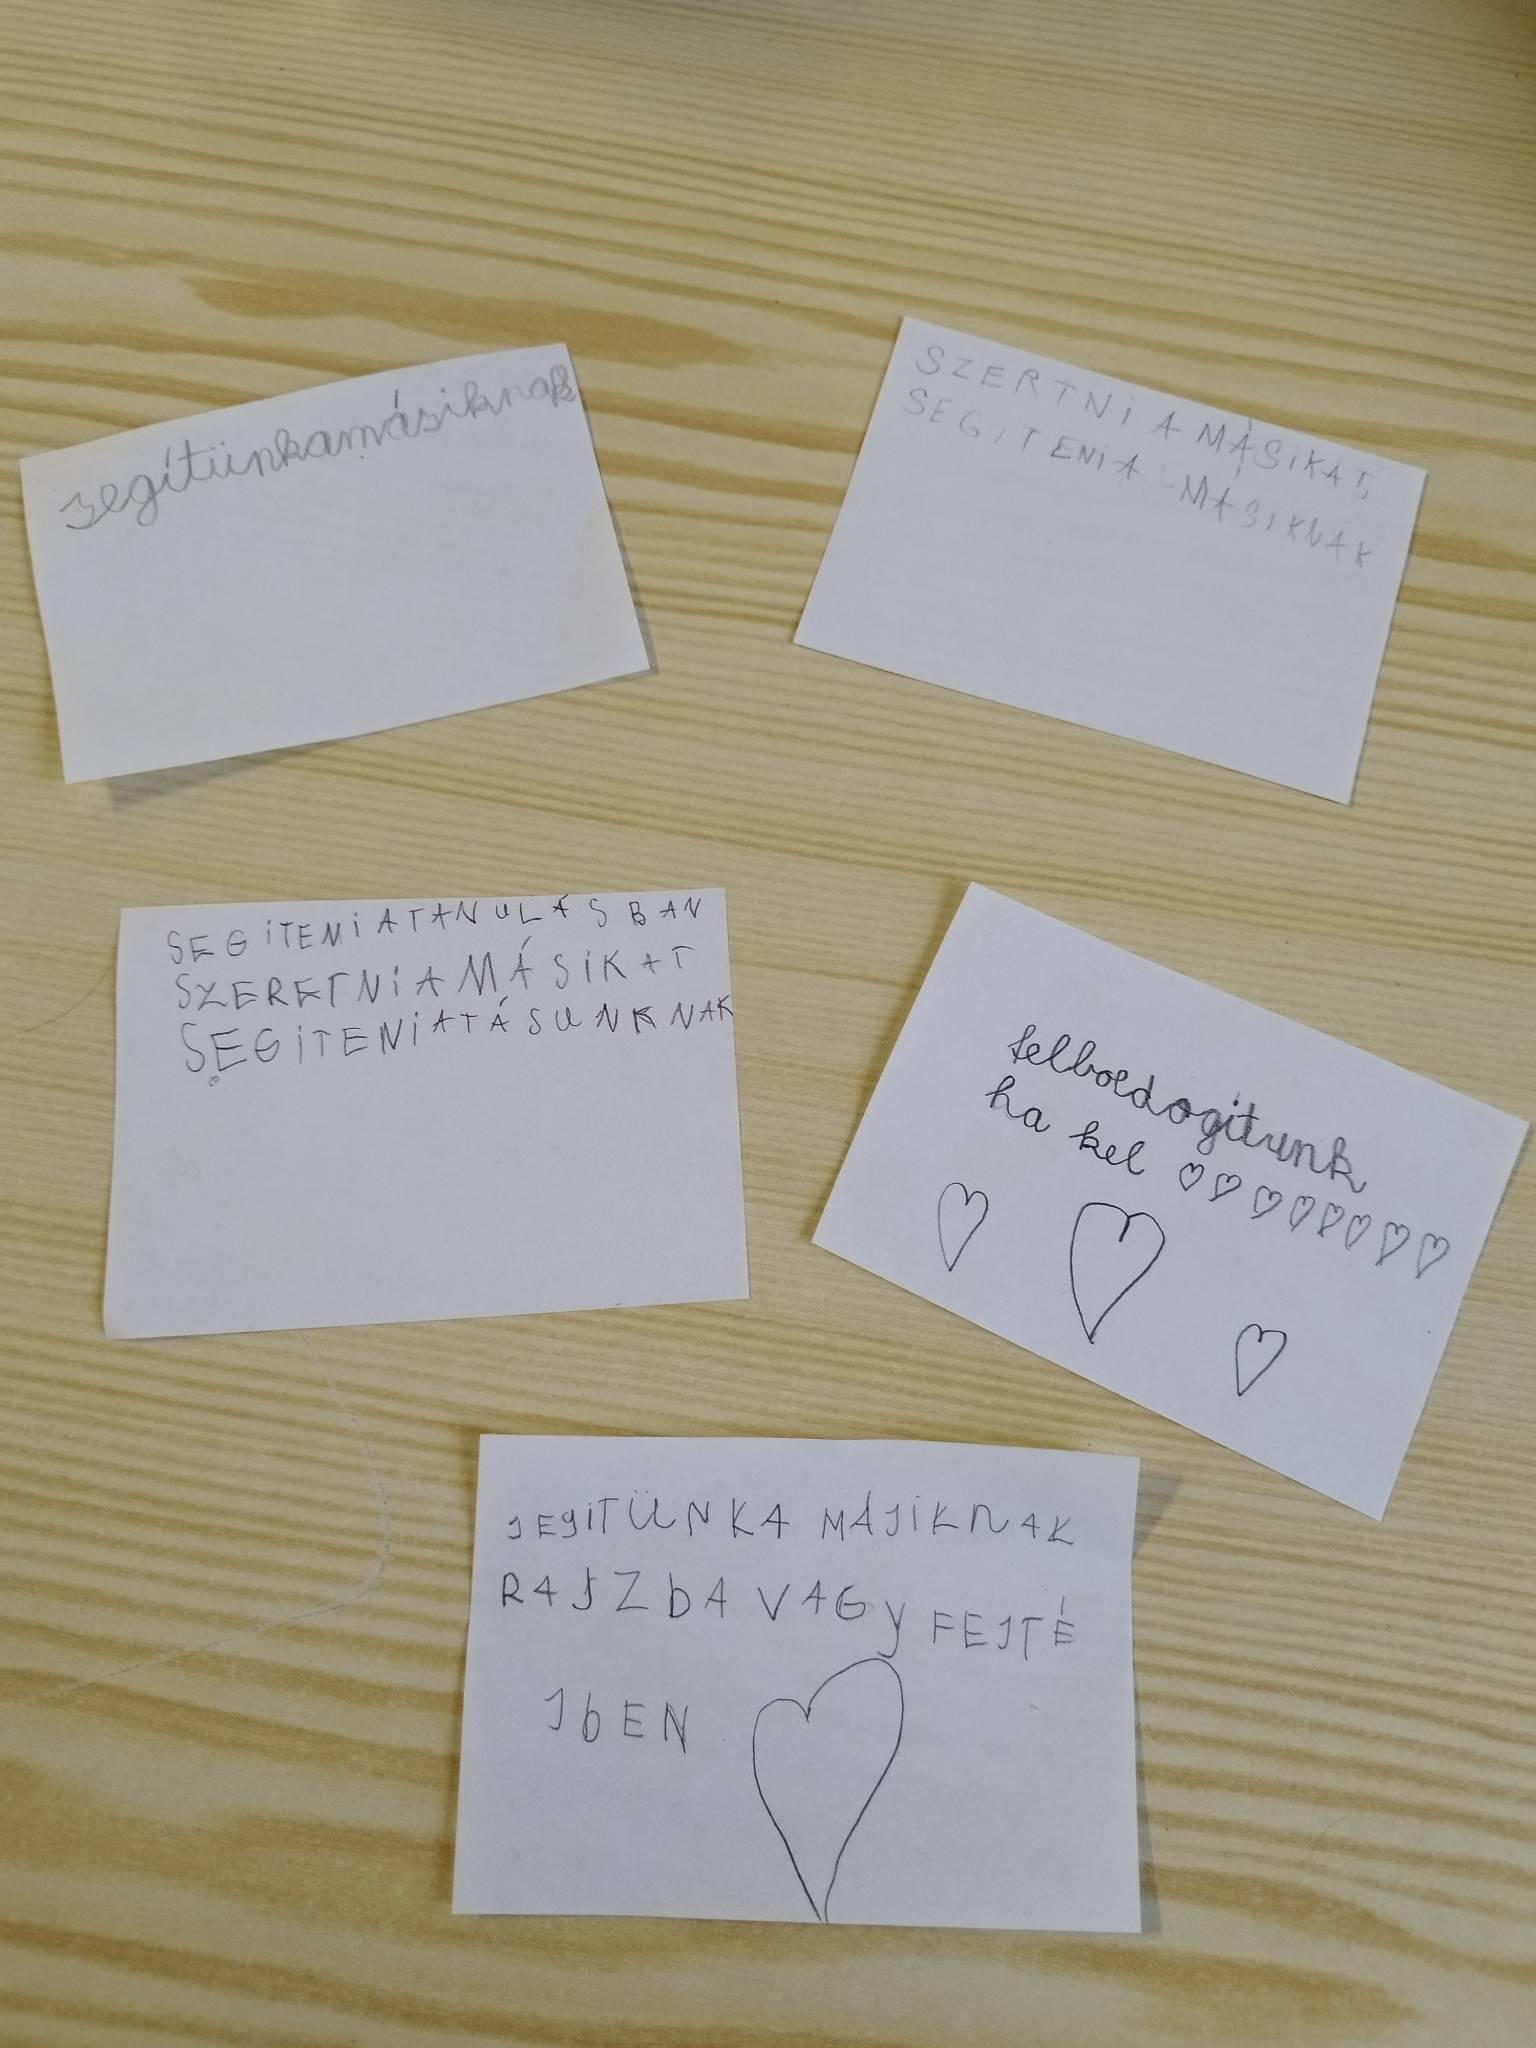 segítünkamásiknak
SZERTNI A MÁSIKAT
SEGITENI A MÁSIKNAK
SEGITENIATANULÁSBAN
SZERETNIAMÁSIKAT
SEGITENIATÁSUNKNAK
felboldogítunk
ha kel ♡♡♡♡♡♡♡♡
SEGITÜNKA MÁSIKNAK
RAJZbA VAGy FEJTÉ
SbEN